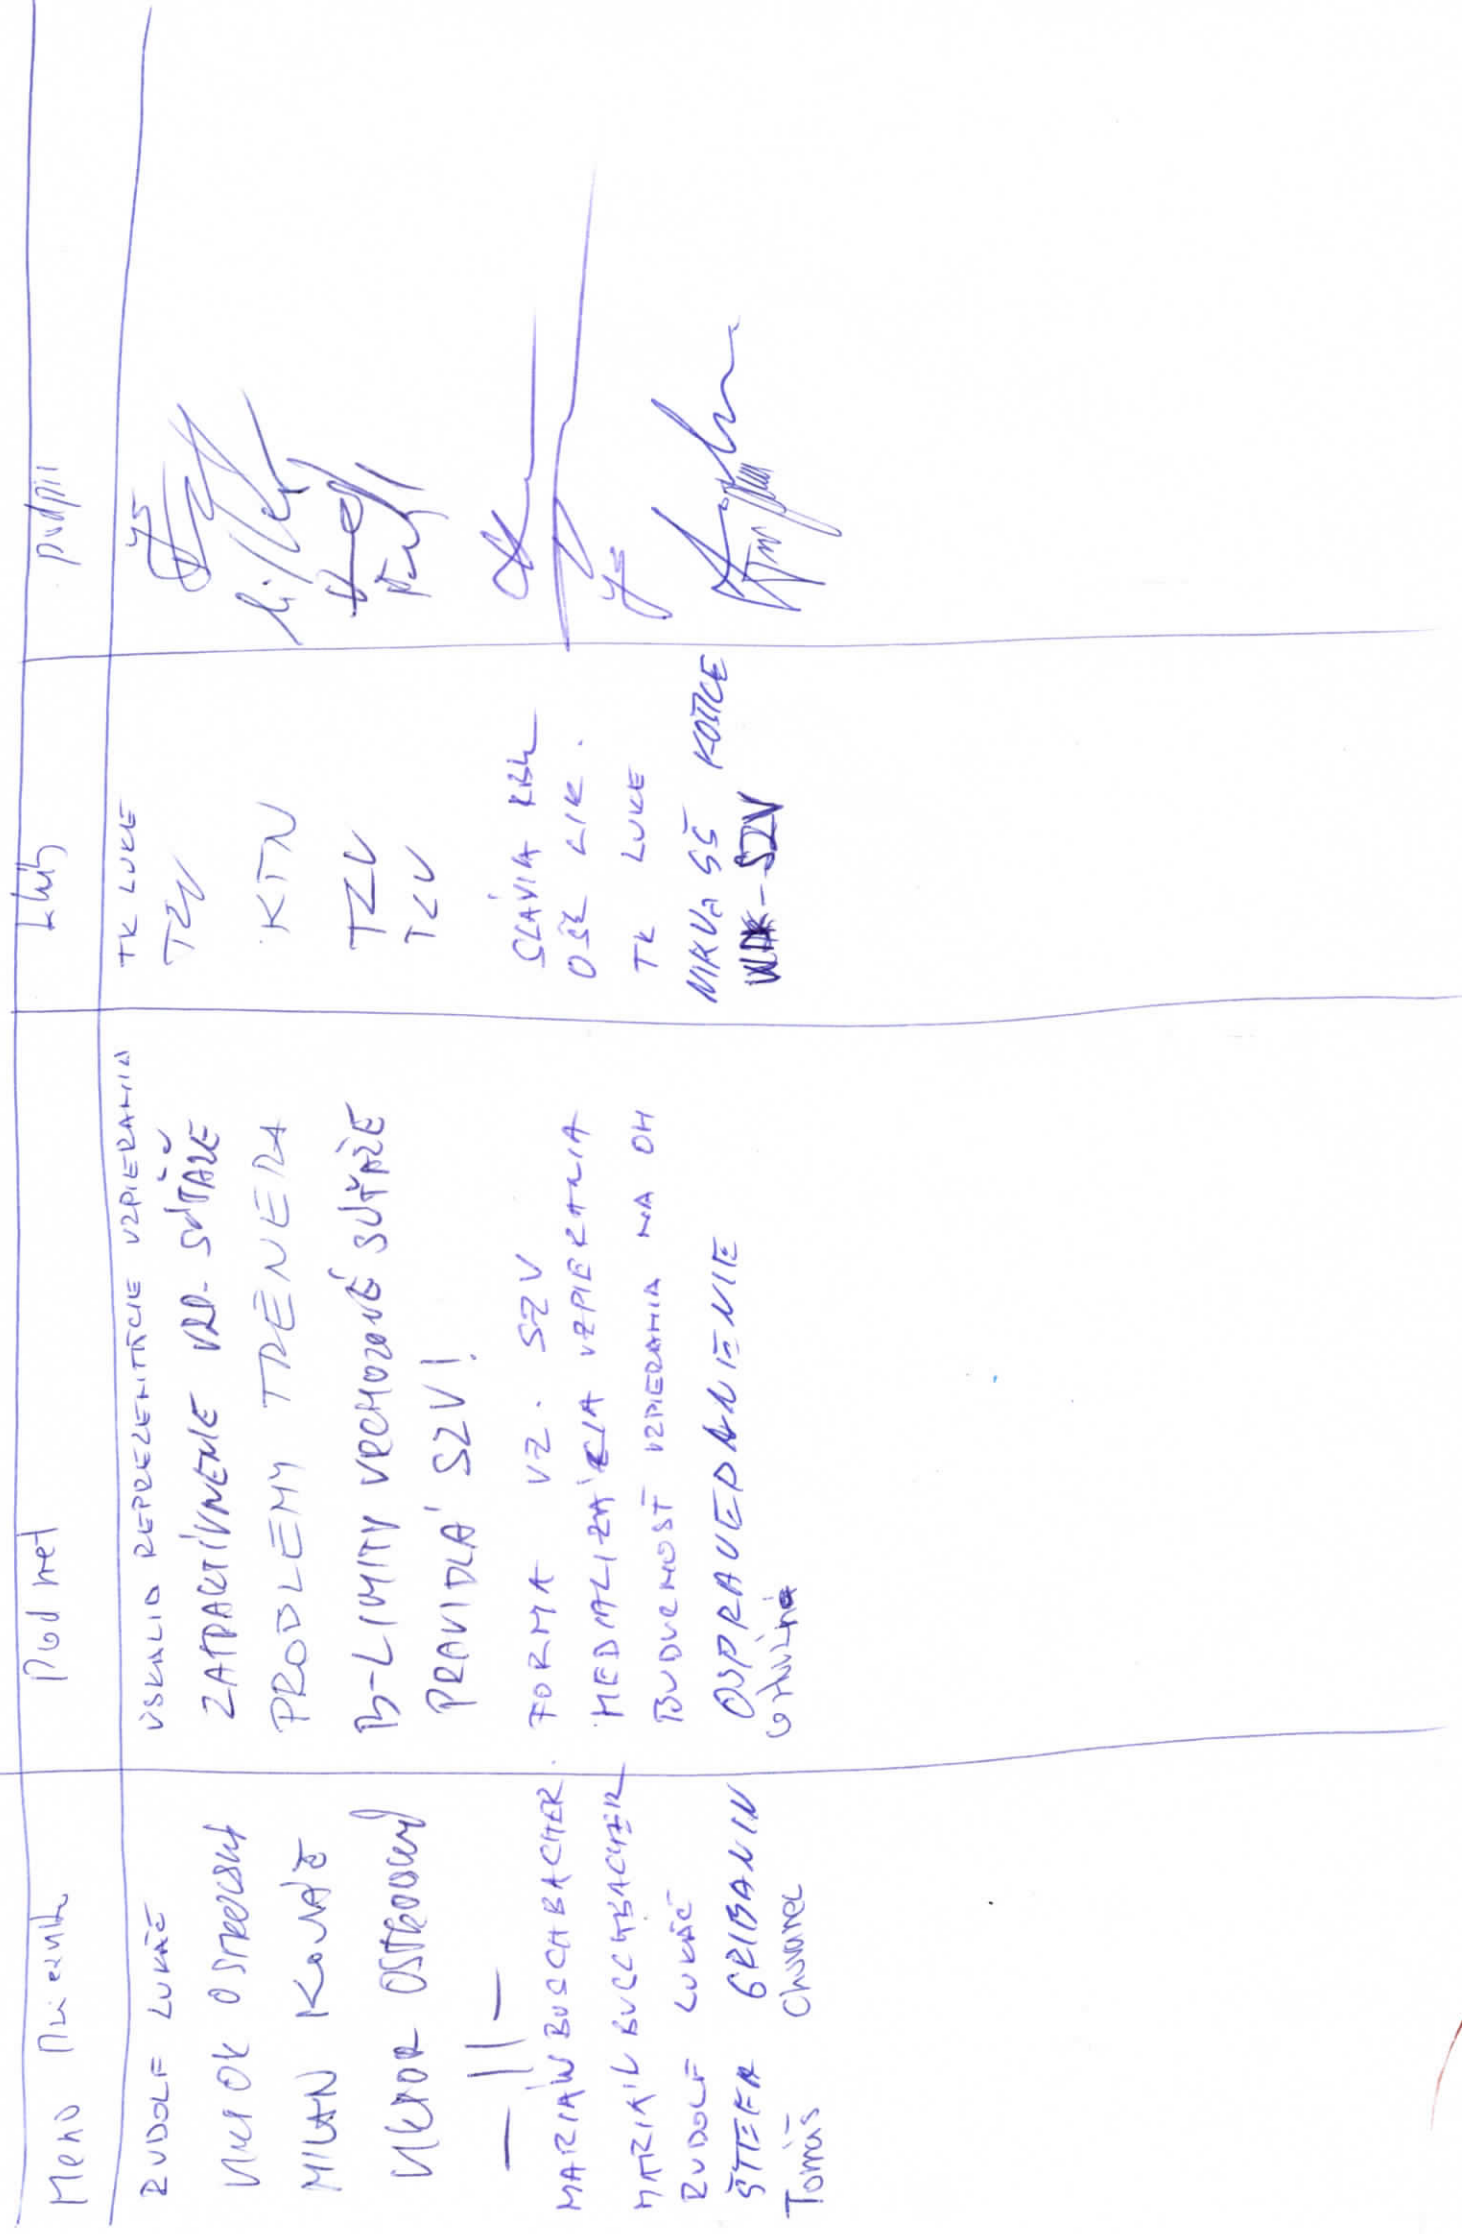 Meno Priezvisko Podnet klub podpis
RUDOLF LUKÁČ ÚSKALIA REPREZENTÁCIE VZPIERANIA TK LUKE
OSTROVSKÝ ZATRAKTÍVNENIE VZP. SÚŤAŽE TZV
MILAN KOVÁČ PROBLEMY TRÉNERA KTN
VIKTOR OSTROVSKÝ B-LIMITY VRCHOZOVÉ SÚŤAŽE TZV
— || — PRAVIDLÁ SZV! TZV
MARIÁN BUSCHBACHER FORMA VZ. SZV SLÁVIA
MARIÁN BUSCHBACHER MEDIALIZÁCIA VZPIERANIA OŠK LIK.
RUDOLF LUKÁČ BUDUCNOSŤ VZPIERANIA NA OH TK LUKE
ŠTEFAN GRIBANIN OSPRAVEDLNENIE SŠ KOŠICE
Tomáš Chovanec SZV